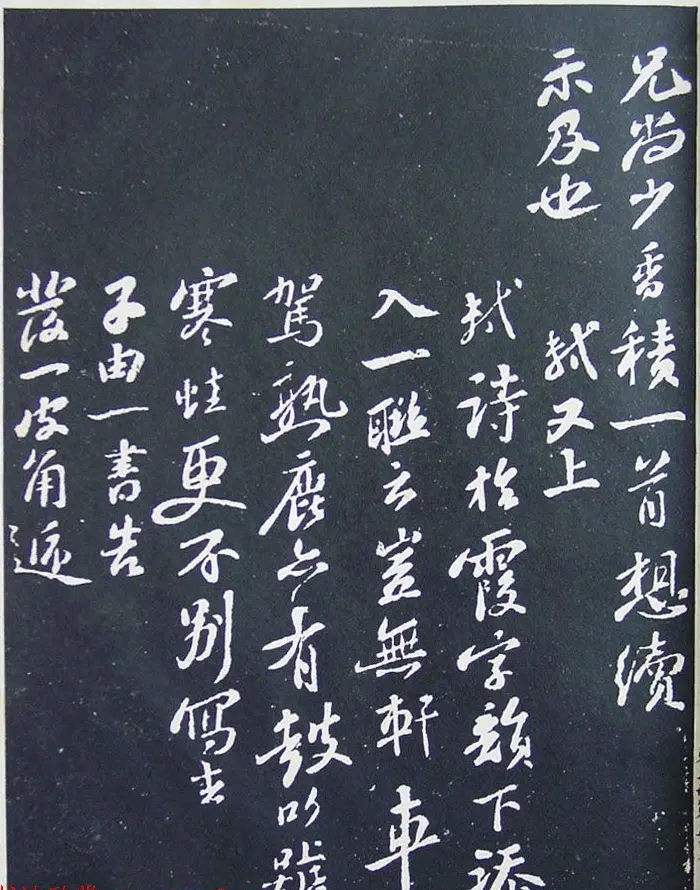 兄尚少香積一首想續
示及也
軾又上
軾詩於霞字韻下添
入一聯云豈無軒車
駕熟鹿亦有鼓吹號
寒蛙更不別寫去
子由一書告
發一皮角遞